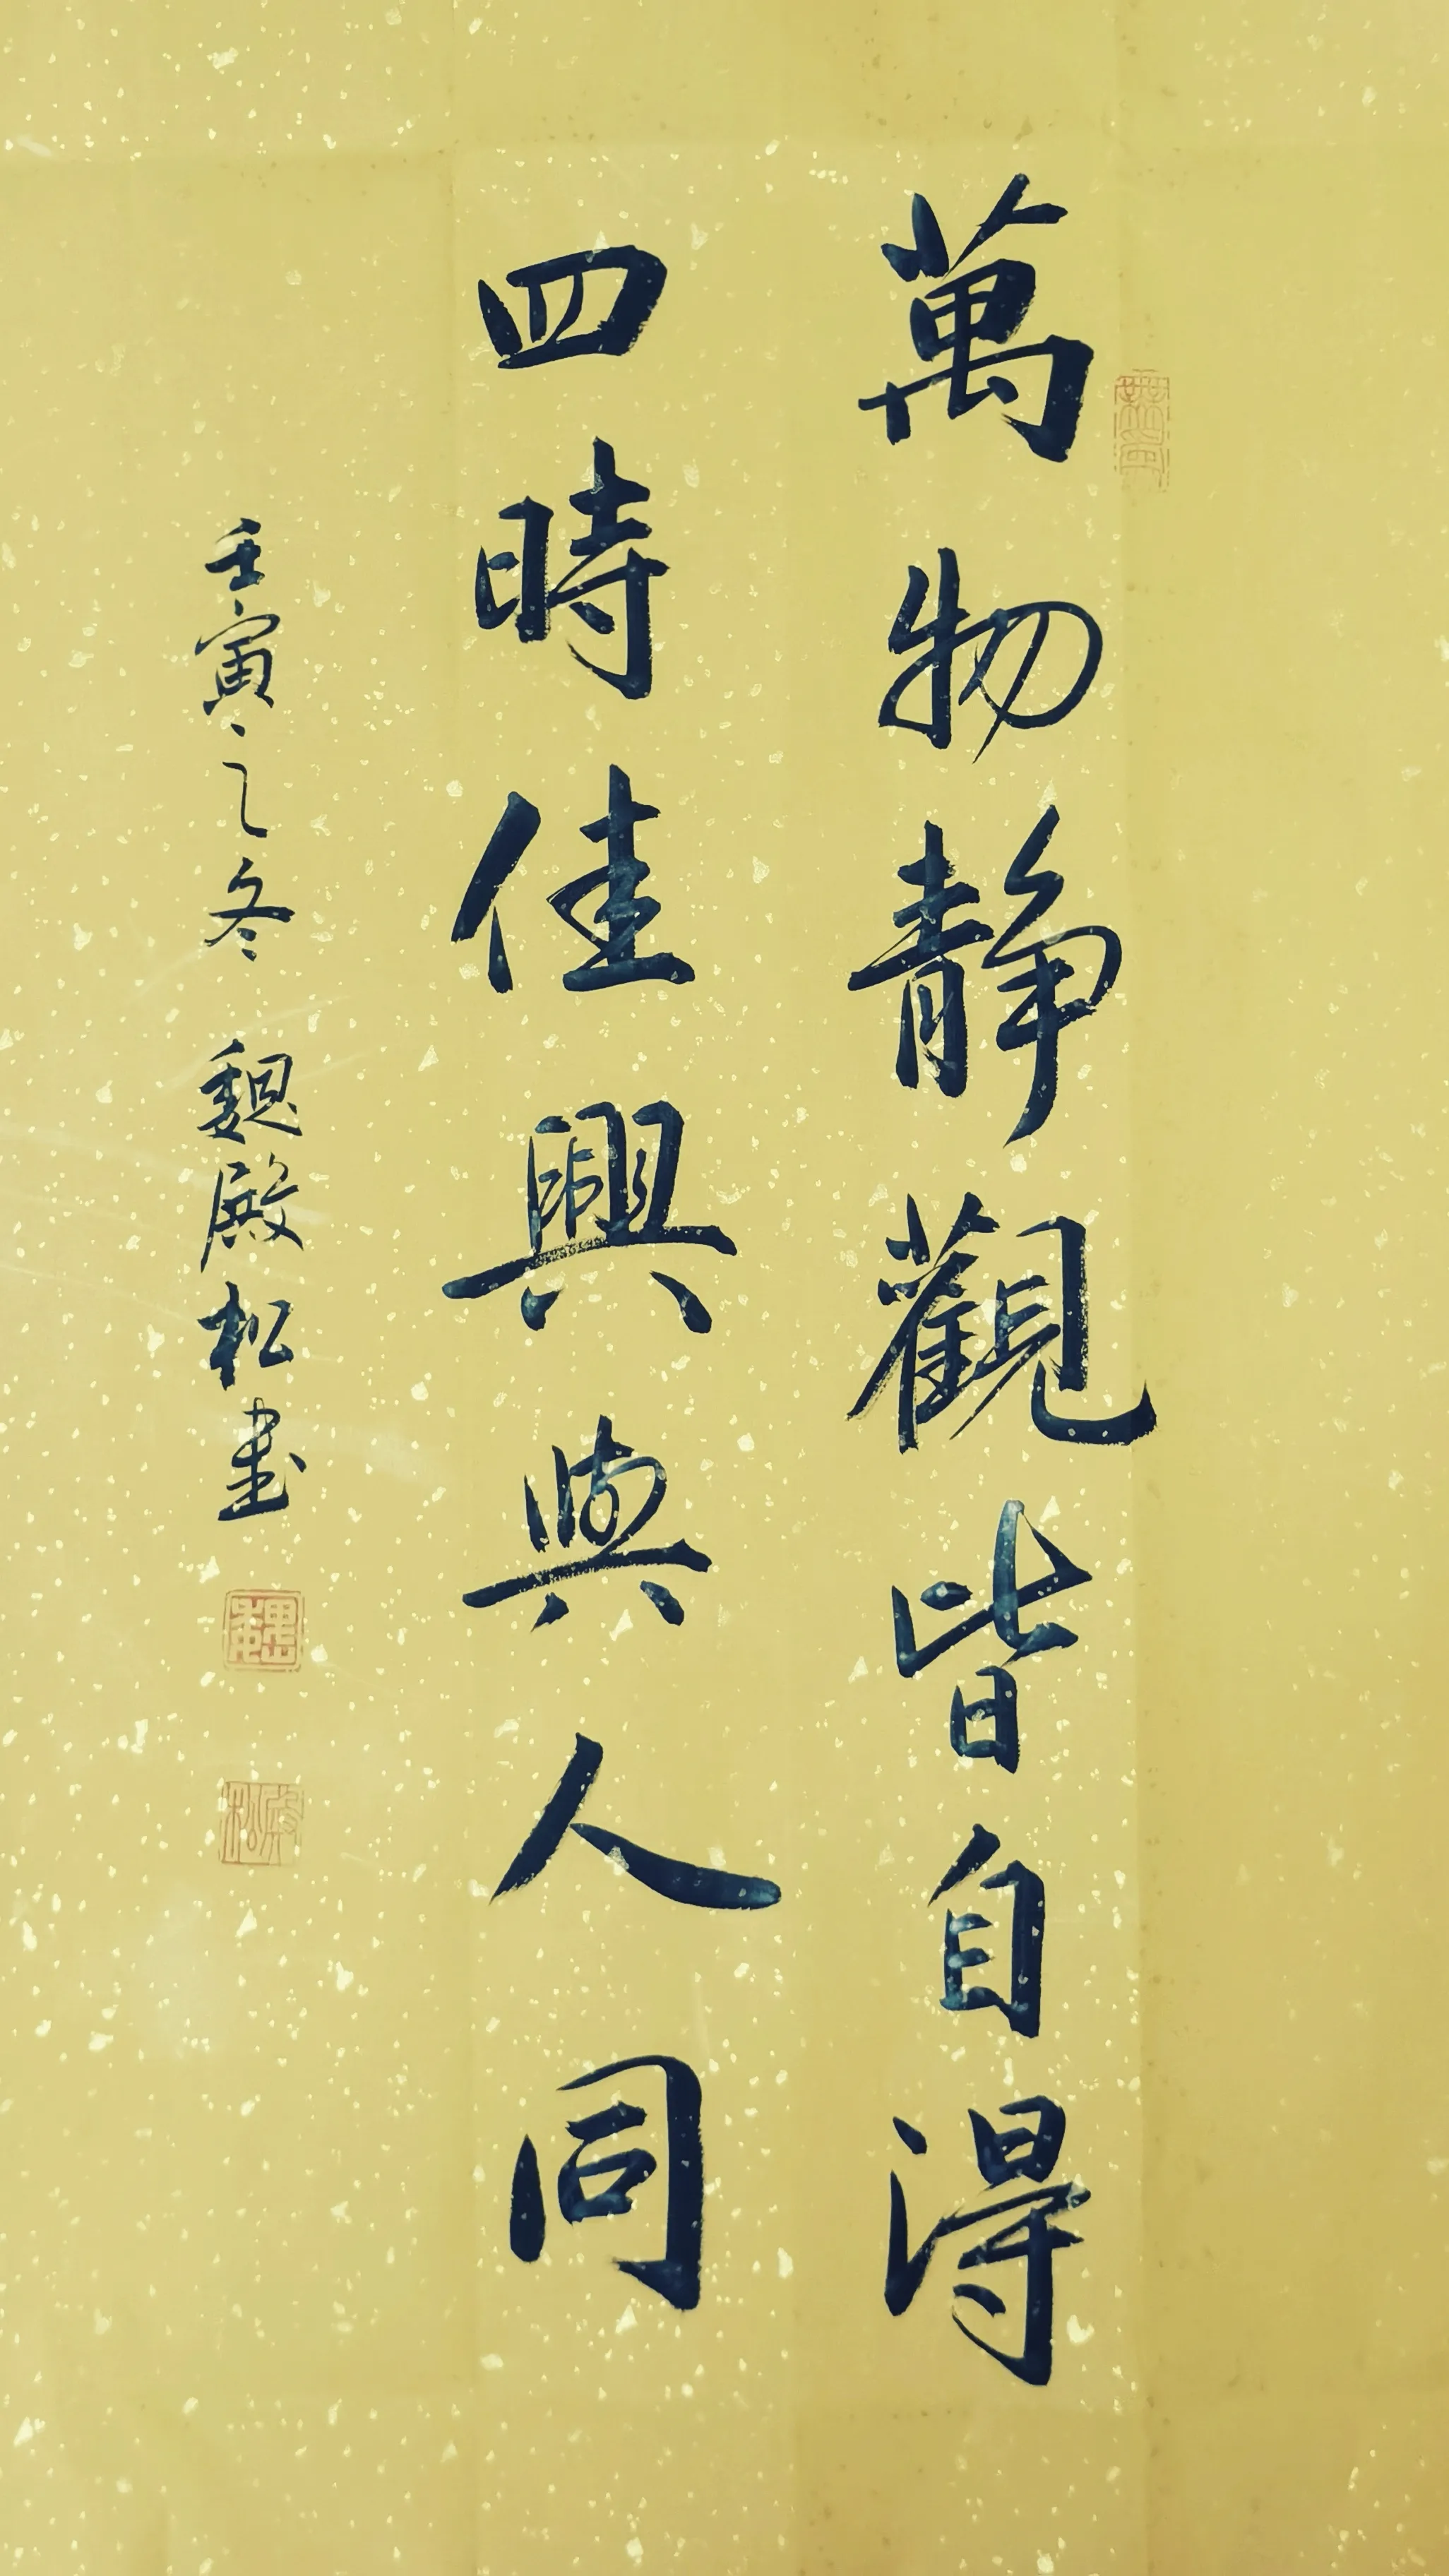 萬物静觀皆自得
四時佳興與人同
壬寅之冬 魏殿松書
魏
殿松